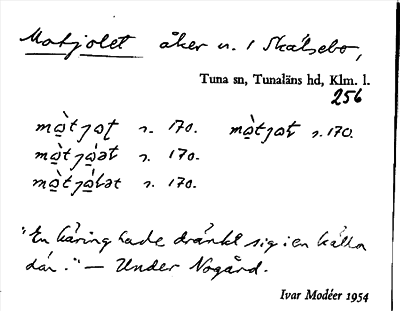 Motjolet åker n. i Skälsebo,
Tuna sn, Tunaläns hd, Klm. l.
256
mo̱̊̀tjo̱ţ n. 170. mo̱̊̀tjo̱t n. 170.
mo̱̊̀tjo̱̊́ət n. 170.
mo̱̊̀tjo̱̊́lət n. 170.
"En käring hade dränkt sig i en källa
där." — Under Nogård.
Ivar Modéer 1954